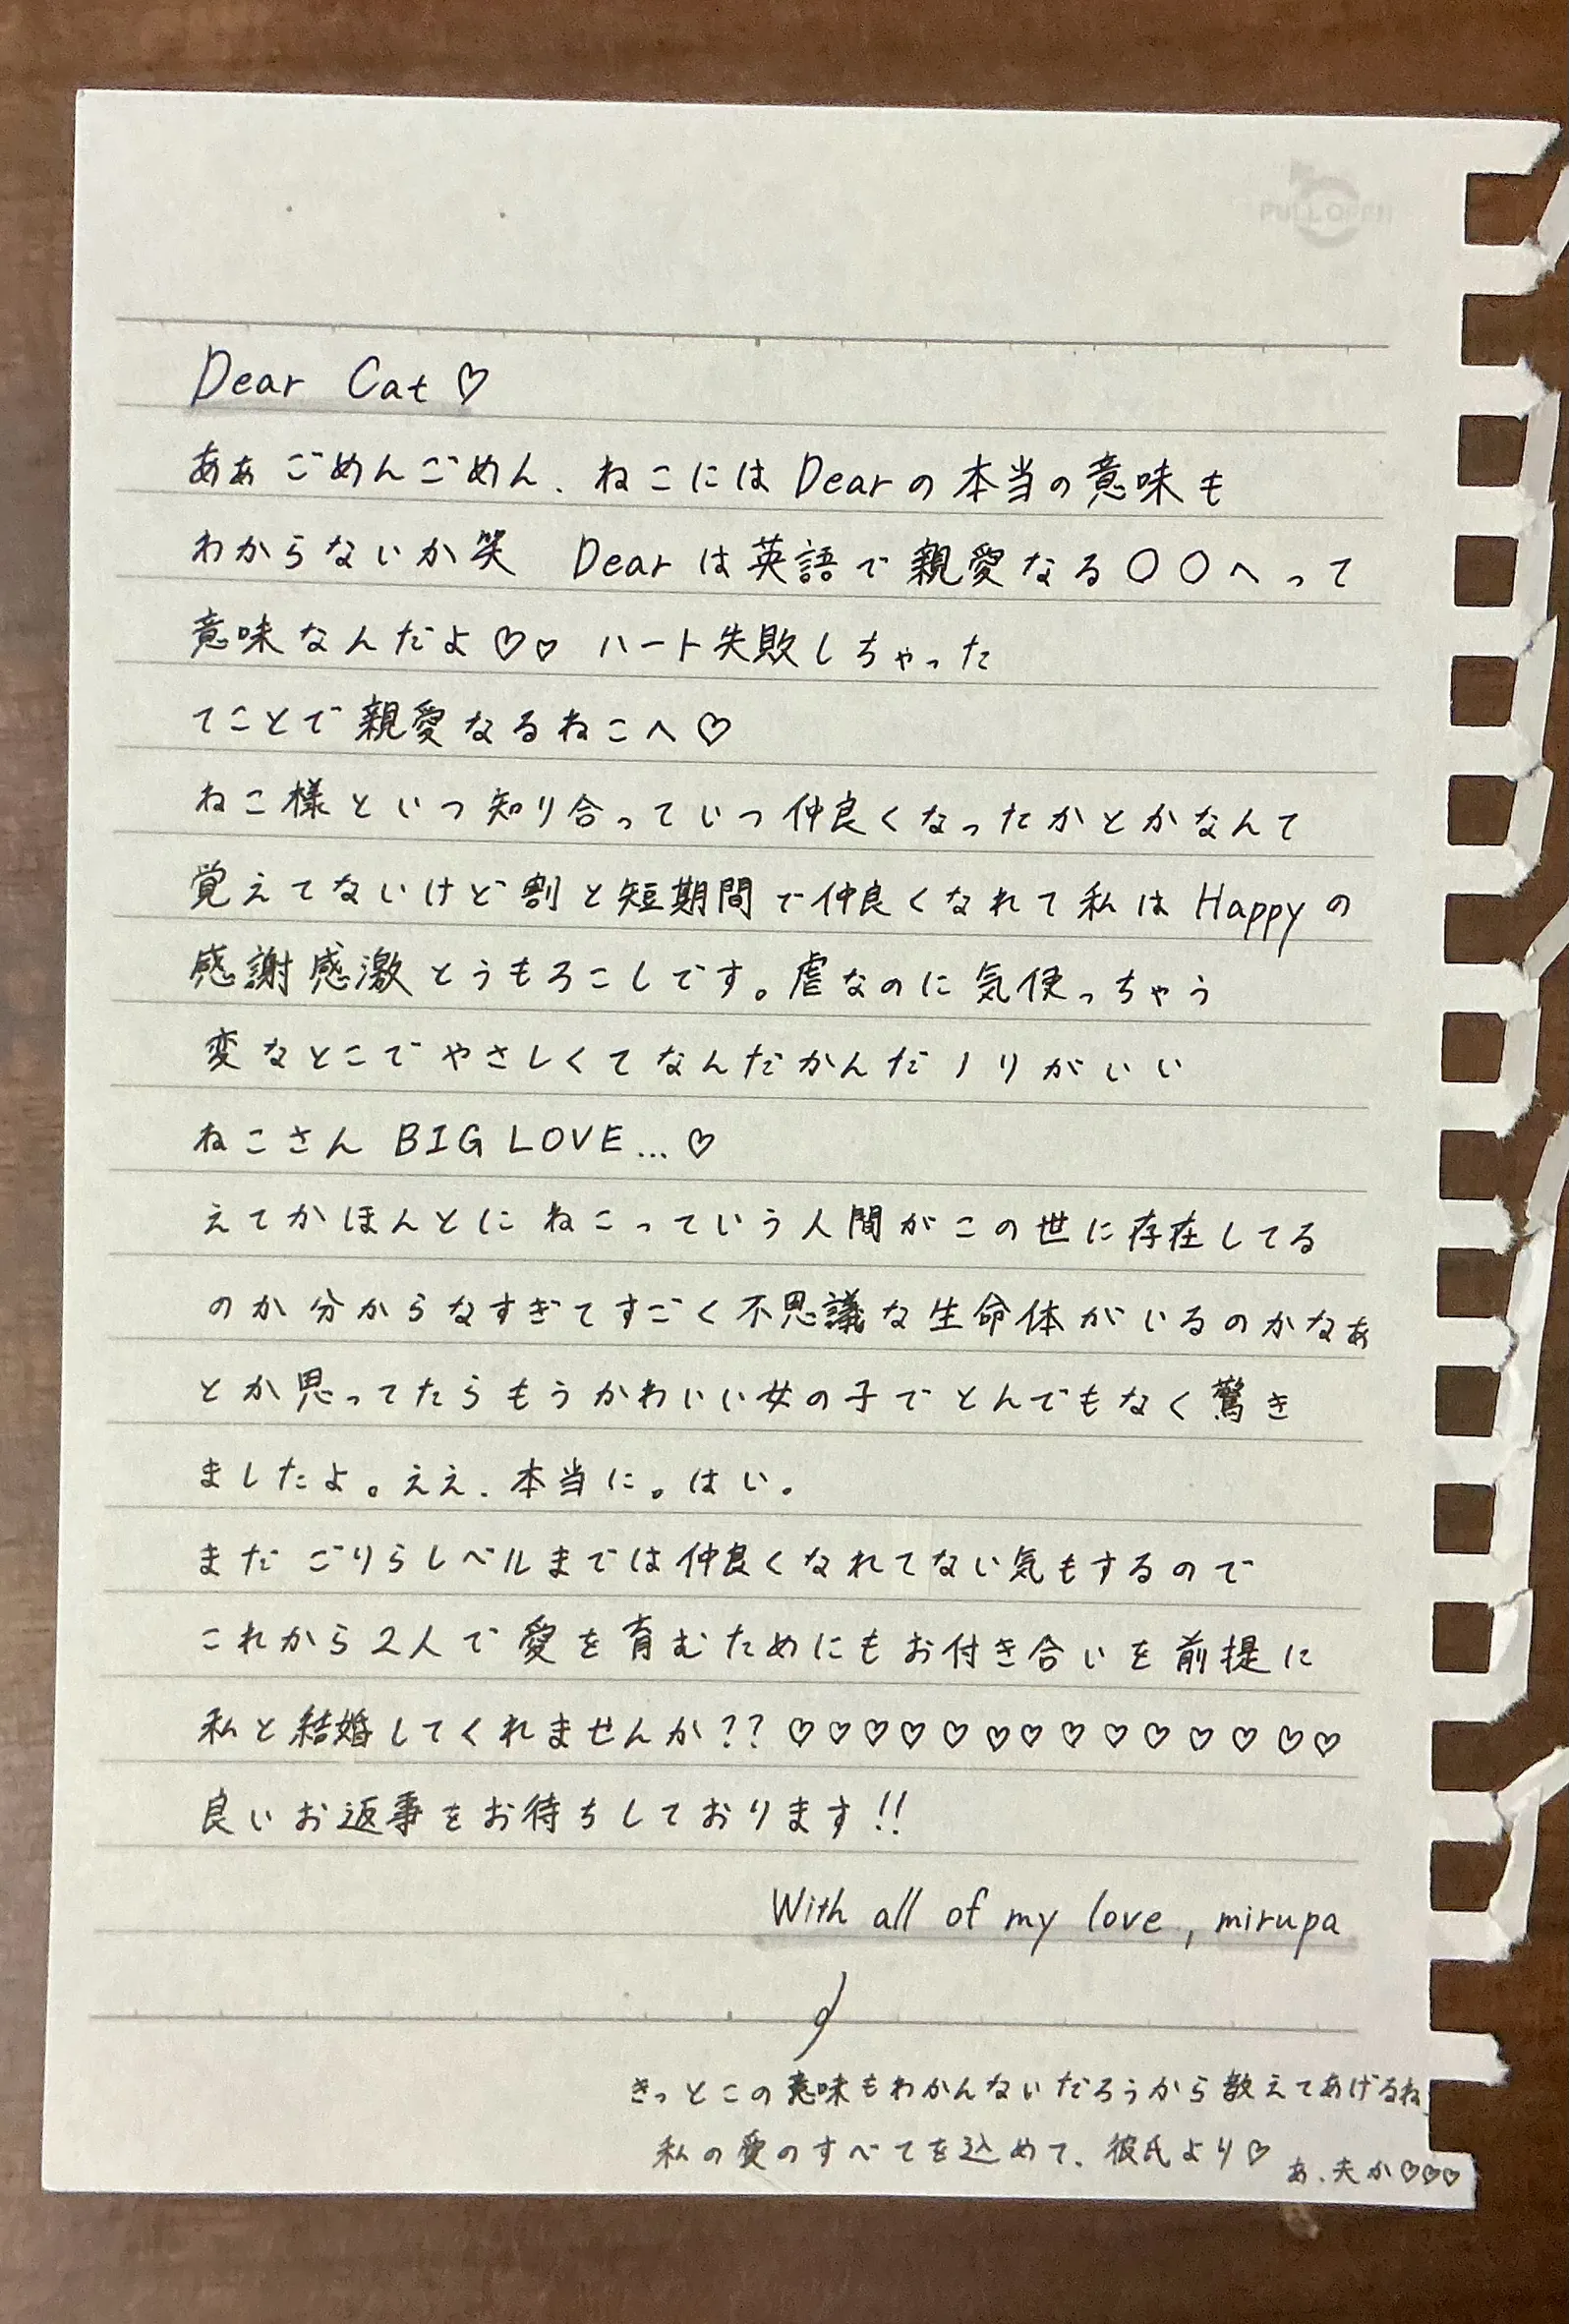 PULL OPEN
Dear Cat♡
あぁごめんごめん、ねこにはDearの本当の意味も
わからないか笑 Dearは英語で親愛なる〇〇へって
意味なんだよ♡♡ ハート失敗しちゃった
てことで親愛なるねこへ♡
ねこ様といつ知り合っていつ仲良くなったかとかなんて
覚えてないけど割と短期間で仲良くなれて私はHappyの
感謝感激とうもろこしです。虐なのに気使っちゃう
変なとこでやさしくてなんだかんだノリがいい
ねこさん BIG LOVE...♡
えてかほんとにねこっていう人間がこの世に存在してる
のか分からなすぎてすごく不思議な生命体がいるのかなぁ
とか思ってたらもうかわいい女の子でとんでもなく驚き
ましたよ。ええ、本当に。はい。
まだごりらレベルまでは仲良くなれてない気もするので
これから2人で愛を育むためにもお付き合いを前提に
私と結婚してくれませんか??♡♡♡♡♡♡♡♡♡♡♡♡♡♡
良いお返事をお待ちしております!!
With all of my love, mirupa
きっとこの意味もわかんないだろうから教えてあげるね
私の愛のすべてを込めて、彼氏より♡ あ、夫か♡♡♡